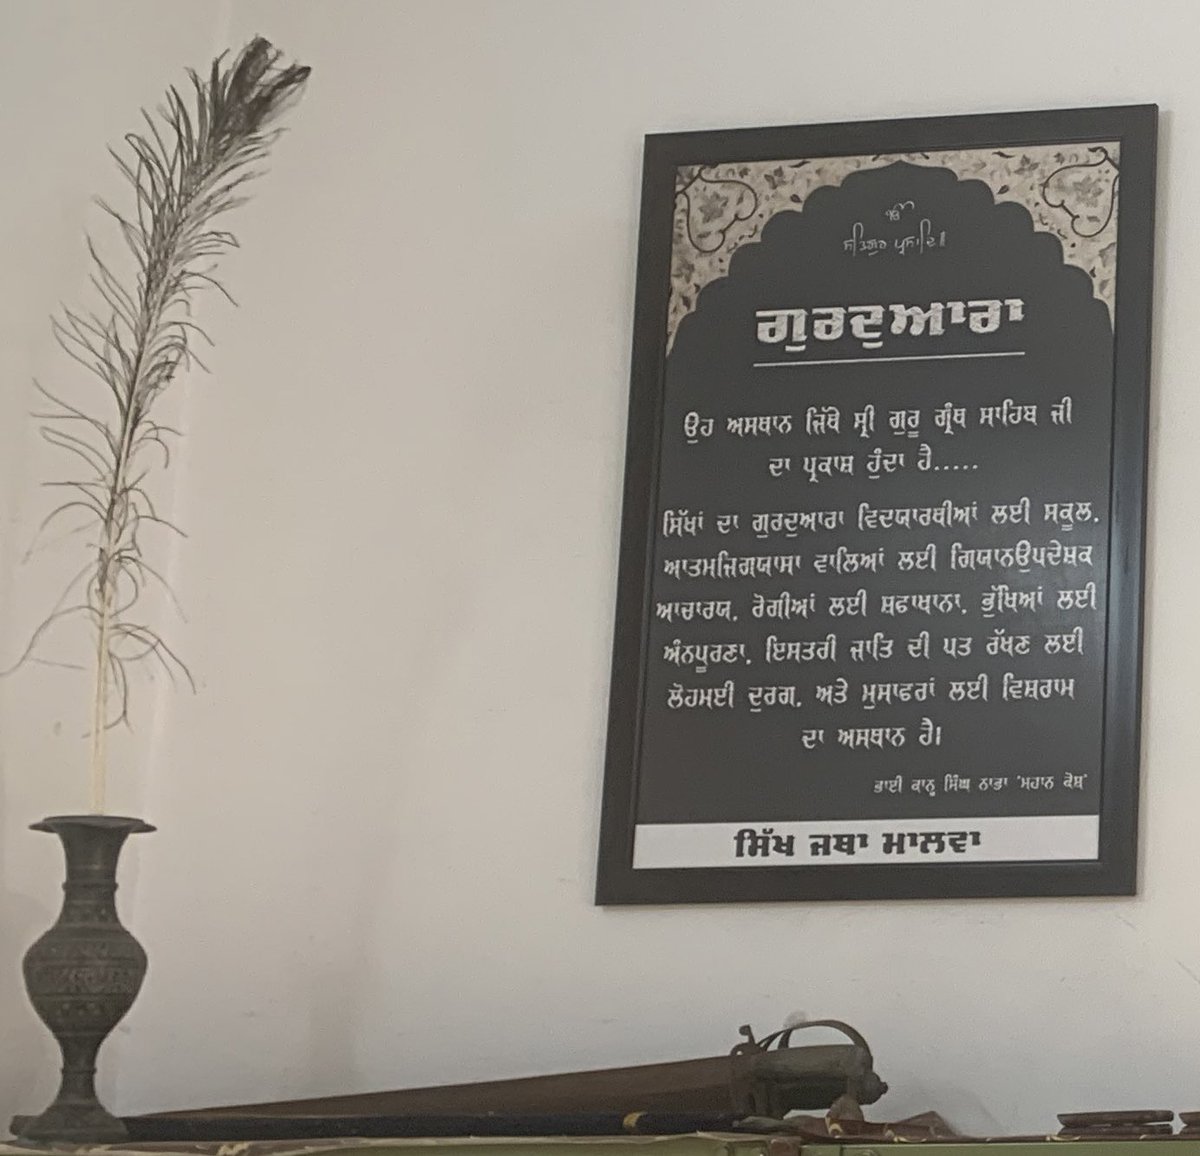 ੴ
ਸਤਿਗੁਰ ਪ੍ਰਸਾਦਿ॥
ਗੁਰਦੁਆਰਾ
ਉਹ ਅਸਥਾਨ ਜਿੱਥੇ ਸ੍ਰੀ ਗੁਰੂ ਗ੍ਰੰਥ ਸਾਹਿਬ ਜੀ
ਦਾ ਪ੍ਰਕਾਸ਼ ਹੁੰਦਾ ਹੈ.....
ਸਿੱਖਾਂ ਦਾ ਗੁਰਦੁਆਰਾ ਵਿਦਯਾਰਥੀਆਂ ਲਈ ਸਕੂਲ,
ਆਤਮਜਿਗਯਾਸਾ ਵਾਲਿਆਂ ਲਈ ਗਿਯਾਨਉਪਦੇਸ਼ਕ
ਆਚਾਰਯ, ਰੋਗੀਆਂ ਲਈ ਸ਼ਫਾਖਾਨਾ, ਭੁੱਖਿਆਂ ਲਈ
ਅੰਨਪੂਰਣਾ, ਇਸਤਰੀ ਜਾਤਿ ਦੀ ਪਤ ਰੱਖਣ ਲਈ
ਲੋਹਮਈ ਦੁਰਗ, ਅਤੇ ਮੁਸਾਫਰਾਂ ਲਈ ਵਿਸ਼ਰਾਮ
ਦਾ ਅਸਥਾਨ ਹੈ।
ਭਾਈ ਕਾਨ੍ਹ ਸਿੰਘ ਨਾਭਾ 'ਮਹਾਨ ਕੋਸ਼'
ਸਿੱਖ ਜਥਾ ਮਾਲਵਾ